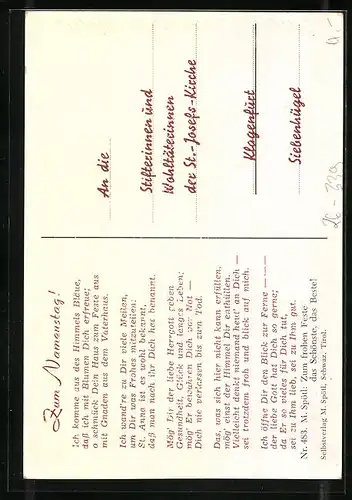 Zum Namenstag!
Ich komme aus des Himmels Bläue,
daß ich mit Blumen Dich erfreue;
o schmück Dein Haus zum Feste aus
mit Gnaden aus dem Vaterhaus.
Ich wand're zu Dir viele Meilen,
um Dir was Frohes mitzuteilen:
St. Anna ist es wohl bekannt,
daß man nach ihr Dich hat benannt.
Mög' Dir der liebe Herrgott geben
Gesundheit, Glück und langes Leben;
mög' Er bewahren Dich vor Not —
Dich nie verlassen bis zum Tod.
Das, was sich hier nicht kann erfüllen,
mög' einst der Himmel Dir enthüllen.
Vielleicht denkt niemand heut' an Dich —
sei trotzdem froh und blick auf mich.
Ich öffne Dir den Blick zur Ferne — —
der liebe Gott hat Dich so gerne;
da Er so vieles für Dich tut,
sei zu Ihm lieb, sei zu Ihm gut.
Nr. 483 M. Spötl: Zum frohen Feste
das Schönste, das Beste!
Selbstverlag M. Spötl, Schwaz, Tirol.
An die
Stifterinnen und
Wohltäterinnen
der St.-Josefs-Kirche
Klagenfurt
Siebenhügel